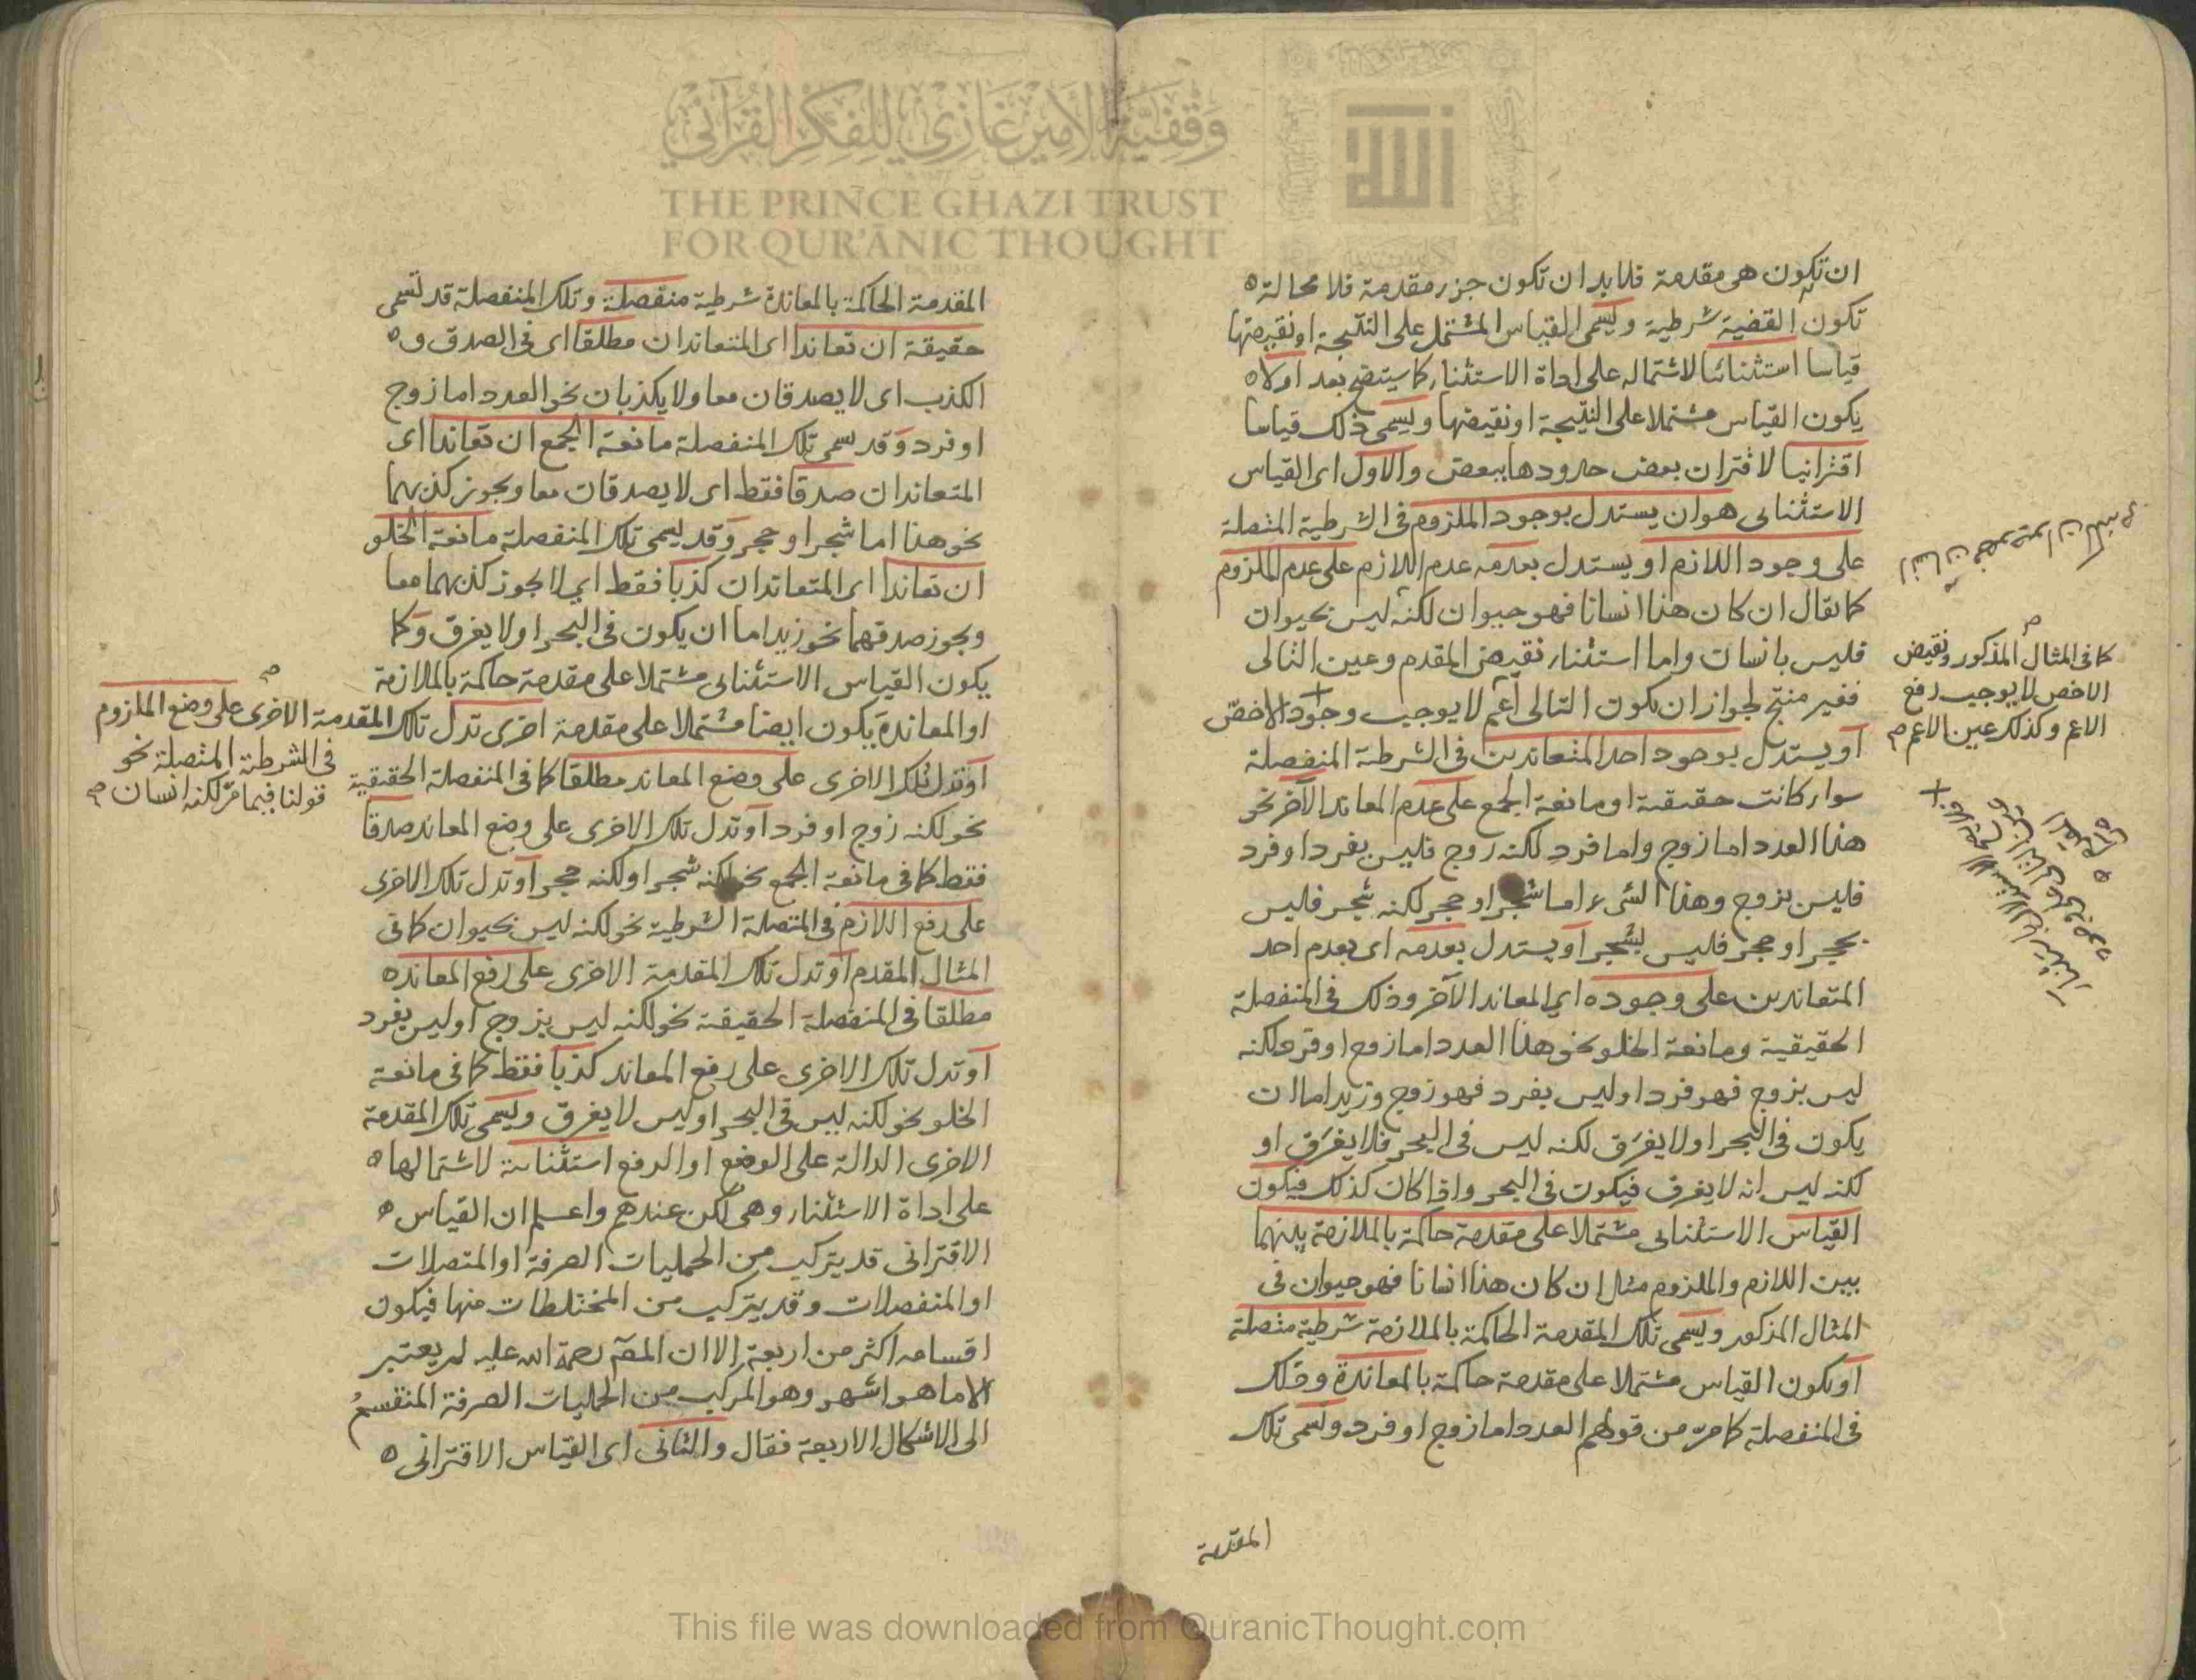 ان تكون هى مقدمة فلا بد ان تكون جزء مقدمة فلا محالة ه
تكون القضية شرطية ويسمى القياس المشتمل على النتيجة او نقيضها
قياسا استثنائيا لاشتماله على اداة الاستثناء كما سيتضح بعد اولا ه
يكون القياس مشتملا على النتيجة او نقيضها ويسمى ذلك قياسا
اقترانيا لاقتران بعض حدودها ببعض والاول اى القياس
الاستثنائى هو ان يستدل بوجود الملزوم فى الشرطية المتصلة
على وجود اللازم او يستدل بعدمه عدم اللازم على عدم الملزوم
كما يقال ان كان هذا انسانا فهو حيوان لكنه ليس بحيوان
فليس بانسان واما استثناء نقيض المقدم وعين التالى
فغير منتج لجواز ان يكون التالى اعم لا يوجب وجود الاخص
او يستدل بوجود احد المتعاندين فى الشرطية المنفصلة
سواء كانت حقيقية او مانعة الجمع على عدم المعاند الآخر نحو
هذا العدد اما زوج واما فرد لكنه زوج فليس بفرد او فرد
فليس بزوج وهذا الشىء اما شجر او حجر لكنه شجر فليس
بحجر او حجر فليس بشجر او يستدل بعدمه اى بعدم احد
المتعاندين على وجوده اى المعاند الآخر وذلك فى المنفصلة
الحقيقية ومانعة الخلو نحو هذا العدد اما زوج او فرد لكنه
ليس بزوج فهو فرد او ليس بفرد فهو زوج وزيد اما ان
يكون فى البحر او لا يغرق لكنه ليس فى البحر فلا يغرق او
لكنه ليس انه لا يغرق فيكون فى البحر واذا كان كذلك فيكون
القياس الاستثنائى مشتملا على مقدمة حاكمة بالملازمة بينهما
بين اللازم والملزوم مثل ان كان هذا انسانا فهو حيوان فى
المثال المذكور ويسمى تلك المقدمة الحاكمة بالملازمة شرطية متصلة
او يكون القياس مشتملا على مقدمة حاكمة بالمعاندة وذلك
فى المنفصلة كما مر من قولهم العدد اما زوج او فرد ويسمى تلك
المقدمة
كما فى المثال المذكور ونقيض
الاخص لا يوجب رفع
الاعم وكذلك عين الاعم م
المقدمة الحاكمة بالمعاندة شرطية منفصلة وتلك المنفصلة قد تسمى
حقيقة ان تعاندا اى المتعاندان مطلقا اى فى الصدق و ه
الكذب اى لا يصدقان معا ولا يكذبان نحو العدد اما زوج
او فرد وقد سمى تلك المنفصلة مانعة الجمع ان تعاندا اى
المتعاندان صدقا فقط اى لا يصدقان معا ويجوز كذبهما
نحو هذا اما شجر او حجر وقد يسمى تلك المنفصلة مانعة الخلو
ان تعاندا اى المتعاندان كذبا فقط اى لا يجوز كذبهما معا
ويجوز صدقهما نحو زيد اما ان يكون فى البحر او لا يغرق وكما
يكون القياس الاستثنائى مشتملا على مقدمة حاكمة بالملازمة
او المعاندة يكون ايضا مشتملا على مقدمة اخرى تدل تلك المقدمة الاخرى على وضع الملزوم
فى الشرطية المتصلة نحو
قولنا فيما مر لكنه انسان م
او تدل تلك الاخرى على وضع المعاند مطلقا كما فى المنفصلة الحقيقية
نحو لكنه زوج او فرد او تدل تلك الاخرى على وضع المعاند صدقا
فقط كما فى مانعة الجمع نحو لكنه شجر او لكنه حجر او تدل تلك الاخرى
على رفع اللازم فى المتصلة الشرطية نحو لكنه ليس بحيوان كما فى
المثال المقدم او تدل تلك المقدمة الاخرى على رفع المعاند ه
مطلقا فى المنفصلة الحقيقية نحو لكنه ليس بزوج او ليس بفرد
او تدل تلك الاخرى على رفع المعاند كذبا فقط كما فى مانعة
الخلو نحو لكنه ليس فى البحر او ليس لا يغرق ويسمى تلك المقدمة
الاخرى الدالة على الوضع او الرفع استثنائية لاشتمالها ه
على اداة الاستثناء وهى لكن عندهم واعلم ان القياس ه
الاقترانى قد يتركب من الحمليات الصرفة او المتصلات
او المنفصلات وقد يتركب من المختلطات منها فيكون
اقسامه اكثر من اربعة الا ان المصَ رحمة الله عليه لم يعتبر
الا ما هو اشهر وهو المركب من الحمليات الصرفة المنقسم
الى الاشكال الاربعة فقال والثانى اى القياس الاقترانى ه
وقفية الأمير غازي للفكر القرآني
THE PRINCE GHAZI TRUST
FOR QUR'ĀNIC THOUGHT
This file was downloaded from QuranicThought.com